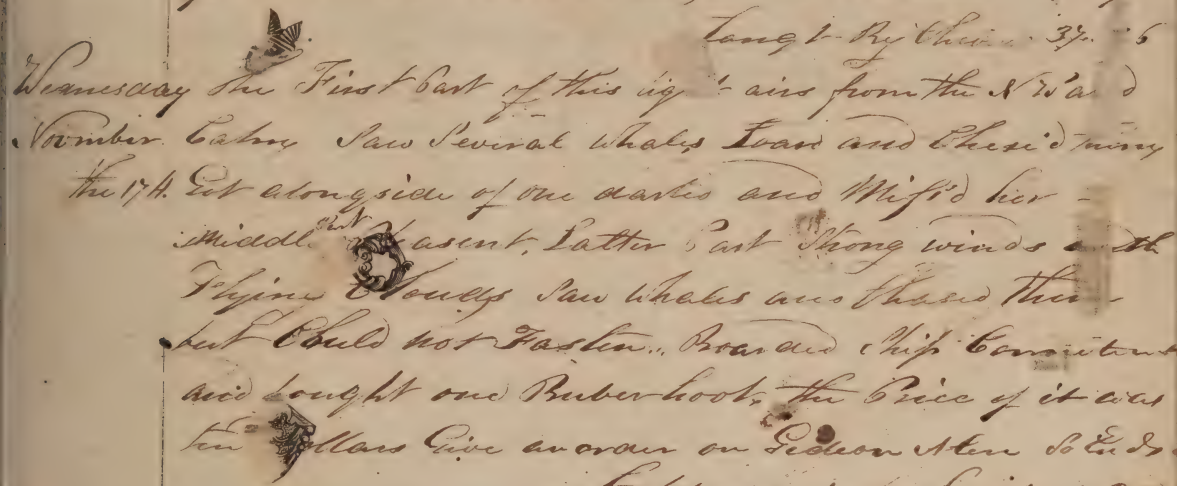 Long t By Chro 37. 6
Wednesday the First Part of this light airs from the N W and
Novmber Calm Saw Several Whales Loard and Chese'd
the 17th. Got alongside of one darted and Miss'd her
Middle Part Pleasent. Latter Part Strong winds with
Flying Clouds Saw Whales and Chased them
but Could not Fasten. Boarded Ship
and bought one Ruber boot, the Price of it was
ten Dollars Give an order on Gedeon Allen So Ends